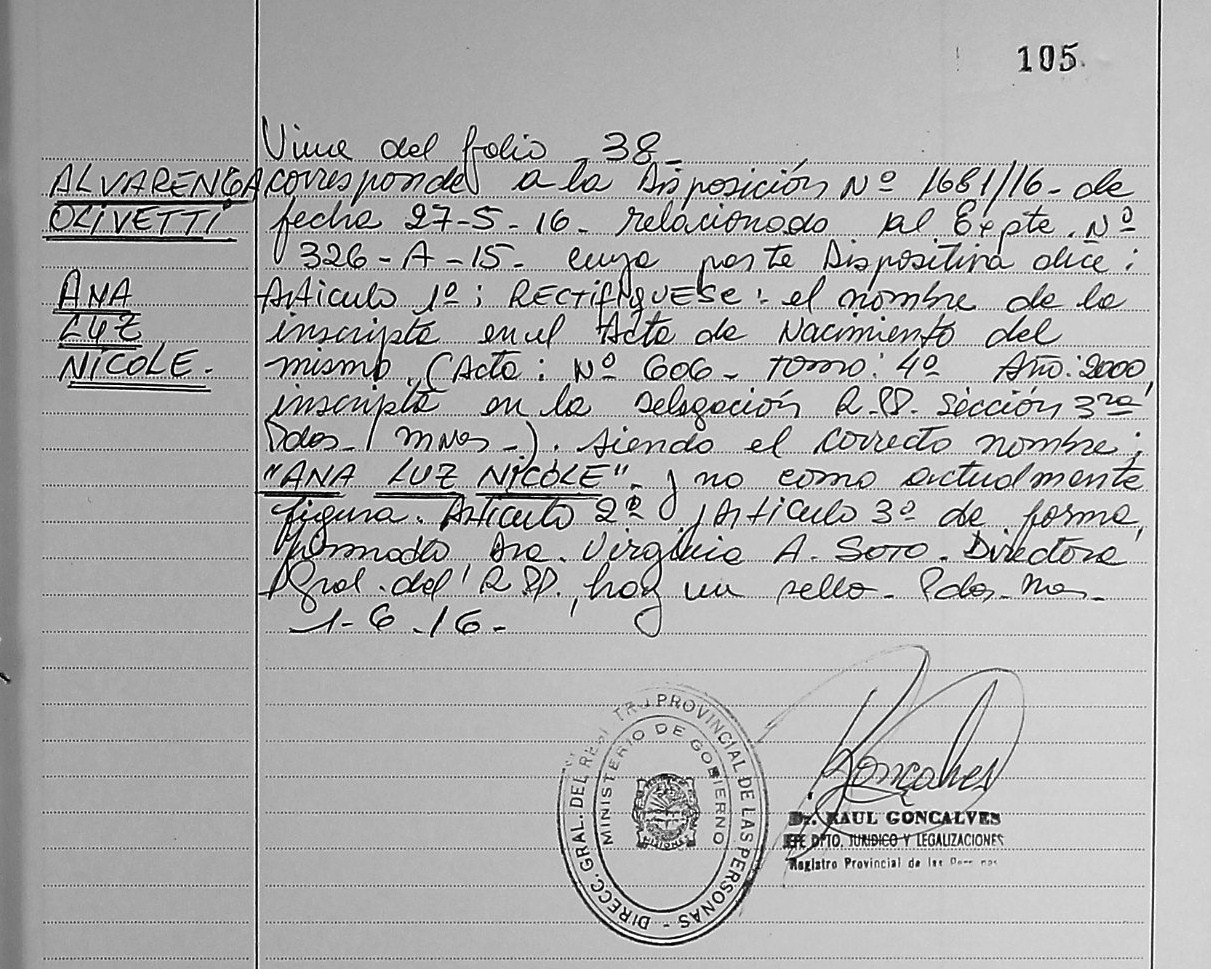 105
Viene del folio 38_
ALVARENGA
OLIVETTI
ANA
LUZ
NICOLE.
corresponde a la Disposición Nº 1681/16- de
fecha 27-5-16- relacionado al Expte. Nº
326-A-15- cuya parte Dispositiva dice:
Articulo 1º: RECTIFIQUESE: el nombre de la
inscripta en el Acta de Nacimiento del
mismo, (Acta: Nº 606_ Tomo: 4º Año: 2000,
inscripta en la Delegación R.PP. Sección 3ra
Pdas_/ mnes_). siendo el correcto nombre:
"ANA LUZ NICOLE"_ y no como actualmente
figura. Articulo 2º y Articulo 3º de forma,
firmado Dra. Virginia A. Soto. Directora
Gral. del R.PP., hay un sello_ Pdas_Mnes_
1-6-16-
DIRECC. GRAL. DEL REGISTRO PROVINCIAL DE LAS PERSONAS
MINISTERIO DE GOBIERNO
MISIONES
Goncalves
Dr. RAUL GONCALVES
JEFE DPTO. JURIDICO Y LEGALIZACIONES
Registro Provincial de las Personas